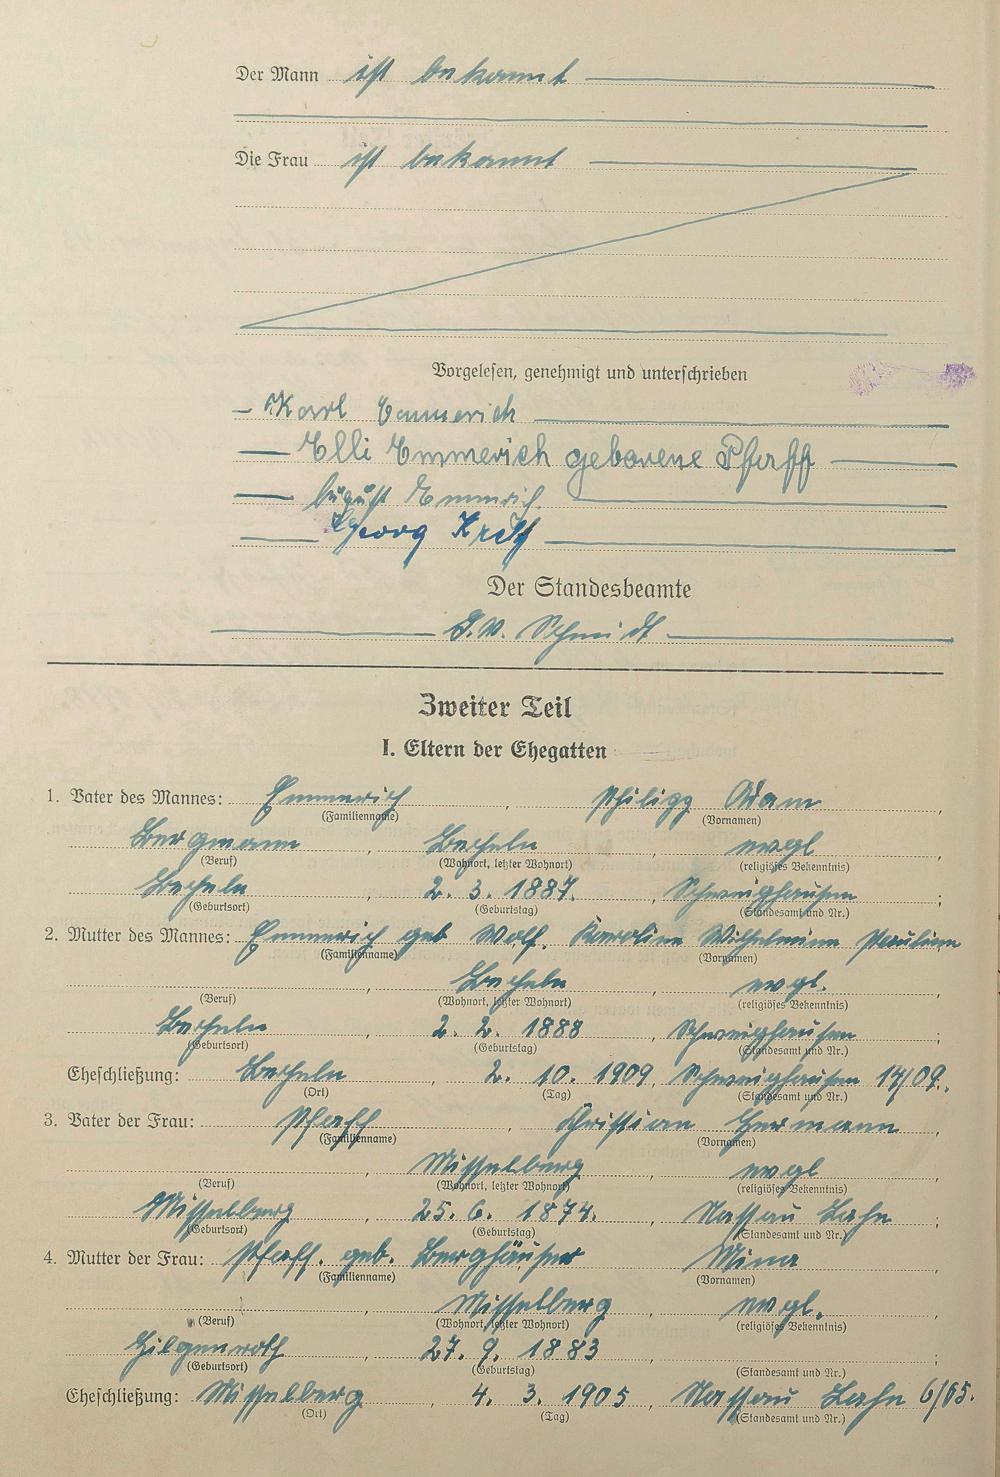 Der Mann ist bekannt
Die Frau ist bekannt
Vorgelesen, genehmigt und unterschrieben
Karl Emmerich
Elli Emmerich geborene Pfaff
August Emmerich.
Georg
Der Standesbeamte
J.V. Schmidt
Zweiter Teil
I. Eltern der Ehegatten
1. Vater des Mannes: Emmerich, Philipp Adam,
(Familienname) (Vornamen)
Bergmann, Becheln, evgl,
(Beruf) (Wohnort, letzter Wohnort) (religiöses Bekenntnis)
Becheln, 2. 3. 1887. Schweighausen;
(Geburtsort) (Geburtstag) (Standesamt und Nr.)
2. Mutter des Mannes: Emmerich geb Wolf, Karoline Wilhelmine Pauline
(Familienname) (Vornamen)
, Becheln, evgl.,
(Beruf) (Wohnort, letzter Wohnort) (religiöses Bekenntnis)
Becheln, 2. 2. 1888 Schweighausen
(Geburtsort) (Geburtstag) (Standesamt und Nr.)
Eheschließung: Becheln, 2. 10. 1909, Schweighausen 14/09.,
(Ort) (Tag) (Standesamt und Nr.)
3. Vater der Frau: Pfaff, Christian Hermann,
(Familienname) (Vornamen)
, Misselberg, evgl,
(Beruf) (Wohnort, letzter Wohnort) (religiöses Bekenntnis)
Misselberg, 25. 6. 1874. Nassau Lahn;
(Geburtsort) (Geburtstag) (Standesamt und Nr.)
4. Mutter der Frau: Pfaff. geb. Berghäuser Mina
(Familienname) (Vornamen)
, Misselberg, evgl.,
(Beruf) (Wohnort, letzter Wohnort) (religiöses Bekenntnis)
Hilgenroth, 27. 9. 1883;
(Geburtsort) (Geburtstag) (Standesamt und Nr.)
Eheschließung: Misselberg, 4. 3. 1905, Nassau Lahn
(Ort) (Tag) (Standesamt und Nr.)